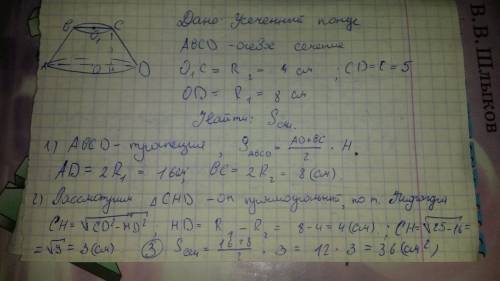 B C
O₁
A O H D
Дано: Усеченный конус
ABCD - осевое сечение
O₁C = R₂ = 4 см ; CD = l = 5
OD = R₁ = 8 см
Найти: Sсеч.
1.) ABCD - трапеция, S_ABCD = (AD+BC)/2 · H.
AD = 2R₁ = 16 см, BC = 2R₂ = 8 (см)
2) Рассмотрим △CHD - он прямоугольный, по т. Пифагора
CH = √(CD² - HD²), HD = R₁ - R₂ = 8-4 = 4 (см) ; CH = √(25-16) =
= √9 = 3 (см) ③ Sсеч = (16+8)/2 · 3 = 12 · 3 = 36 (см²)
В.В.Шлыков